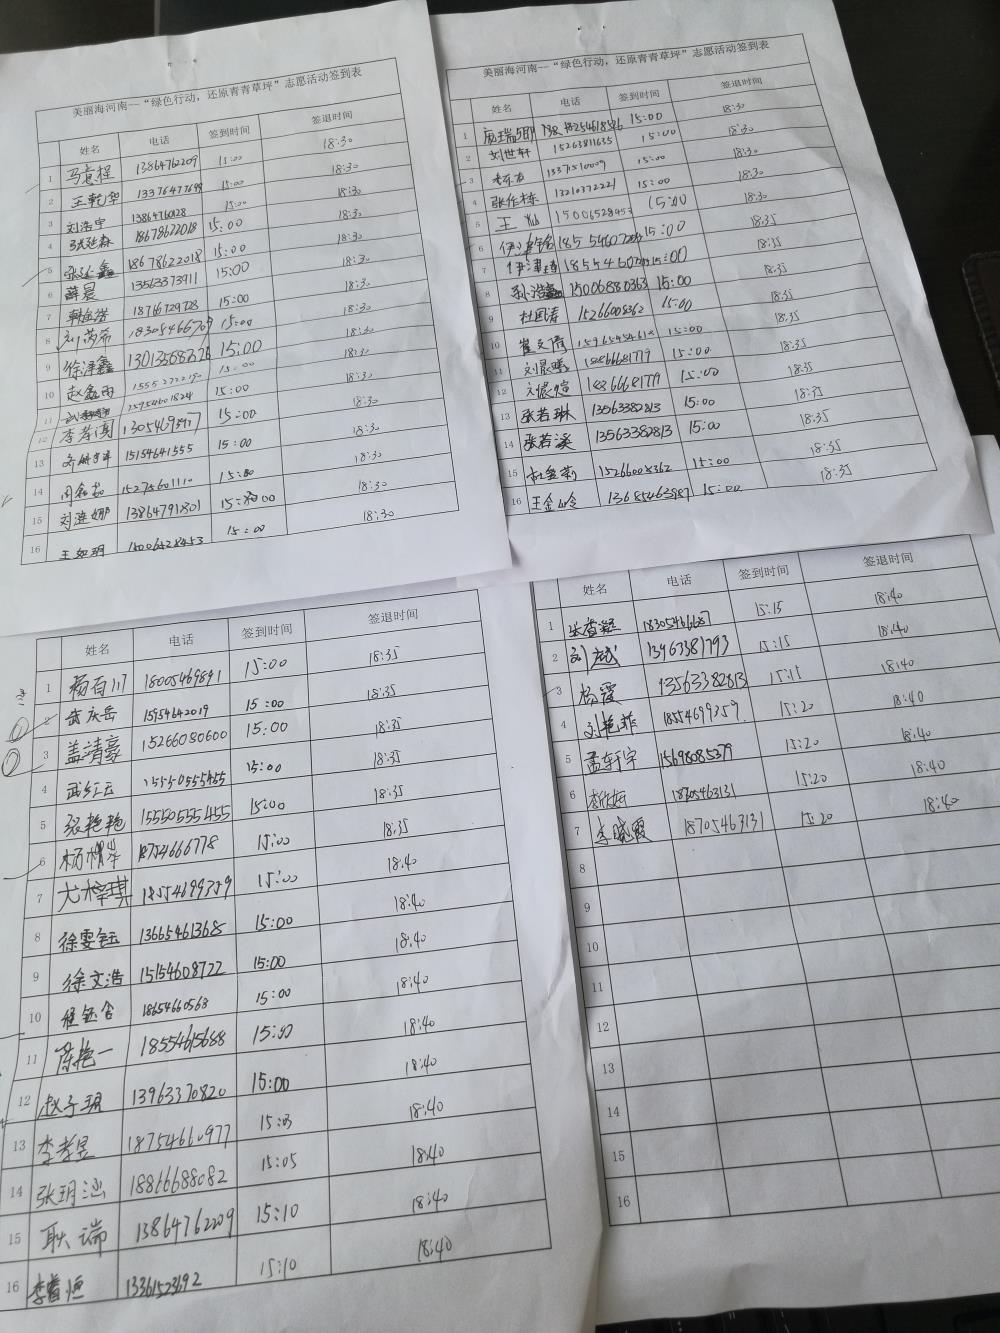 美丽海河南—"绿色行动，还原青青草坪"志愿活动签到表
姓名 电话 签到时间 签退时间
1 马意程 13864762209 15:00 18:30
2 王乾华 15:00 18:30
3 刘浩宇 13864760128 15:00 18:30
4 张延森 18678622018 15:00 18:30
5 18678622018 15:00 18:30
6 薛晨 13563373911 15:00 18:30
7 18716729728 15:00 18:30
8 15:00 18:30
9 徐津鑫 15:00 18:30
10 赵鑫雨 15:00 18:30
11 15954601824 15:00 18:30
12 15:00 18:30
13 15154641555 15:00 18:30
14 15275601110 15:00 18:30
15 刘涟娜 13864791801 18:30
16 王如玥 15006528453 15:00 18:30
美丽海河南—"绿色行动，还原青青草坪"志愿活动签到表
姓名 电话 签到时间 签退时间
1 15:00 18:30
2 刘世轩 15263811635 15:00 18:30
3 13371510009 15:00 18:30
4 张作栋 13210372221 15:00 18:30
5 王 15006528453 15:00 18:30
6 15:00 18:35
7 15:00 18:35
8 孙浩鑫 15006880363 15:00 18:35
9 杜国涛 15266008362 15:00 18:35
10 崔文倩 15:00 18:35
11 刘晨曦 18866681779 15:00 18:35
12 18866681779 15:00 18:35
13 张若琳 13563382813 15:00 18:35
14 张若溪 13563382813 15:00 18:35
15 15266008362 15:00 18:35
16 王金岭 13685463987 15:00 18:35
姓名 电话 签到时间 签退时间
1 杨百川 18005469891 15:00 18:35
2 武庆岳 15954642019 15:00 18:35
3 盖靖豪 15266080600 15:00 18:35
4 武红云 15550555455 15:00 18:35
5 张艳艳 15550555455 15:00 18:35
6 18754666778 15:00 18:35
7 尤梓琪 18554699359 15:00 18:40
8 徐雯钰 13665461368 15:00 18:40
9 徐文浩 15154608722 15:00 18:40
10 18654660568 15:00 18:40
11 陈艳一 18554615688 15:00 18:40
12 赵子珺 13963370820 15:00 18:40
13 李孝昱 18754660977 15:03 18:40
14 张玥涵 18866688082 15:05 18:40
15 耿端 13864762209 15:10 18:40
16 15:10 18:40
姓名 电话 签到时间 签退时间
1 18305466687 15:15 18:40
2 刘志武 13963381793 15:15 18:40
3 杨霞 13563382813 15:15 18:40
4 刘艳菲 18554699359 15:20 18:40
5 孟轩宇 15698085379 15:20 18:40
6 18705463131 15:20 18:40
7 李晓霞 18705463131 15:20 18:40
8
9
10
11
12
13
14
15
16